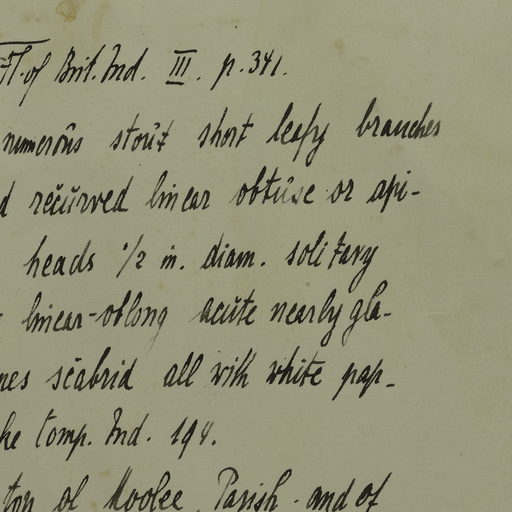 Fl. of Brit. Ind. III. p. 341.
numerous stout short leafy branches
d recurved linear obtuse or api-
heads 1/2 in. diam. solitary
linear-oblong acute nearly gla-
nes scabrid all with white pap-
ke Comp. Ind. 194.
top of Moolee, Parish. and of